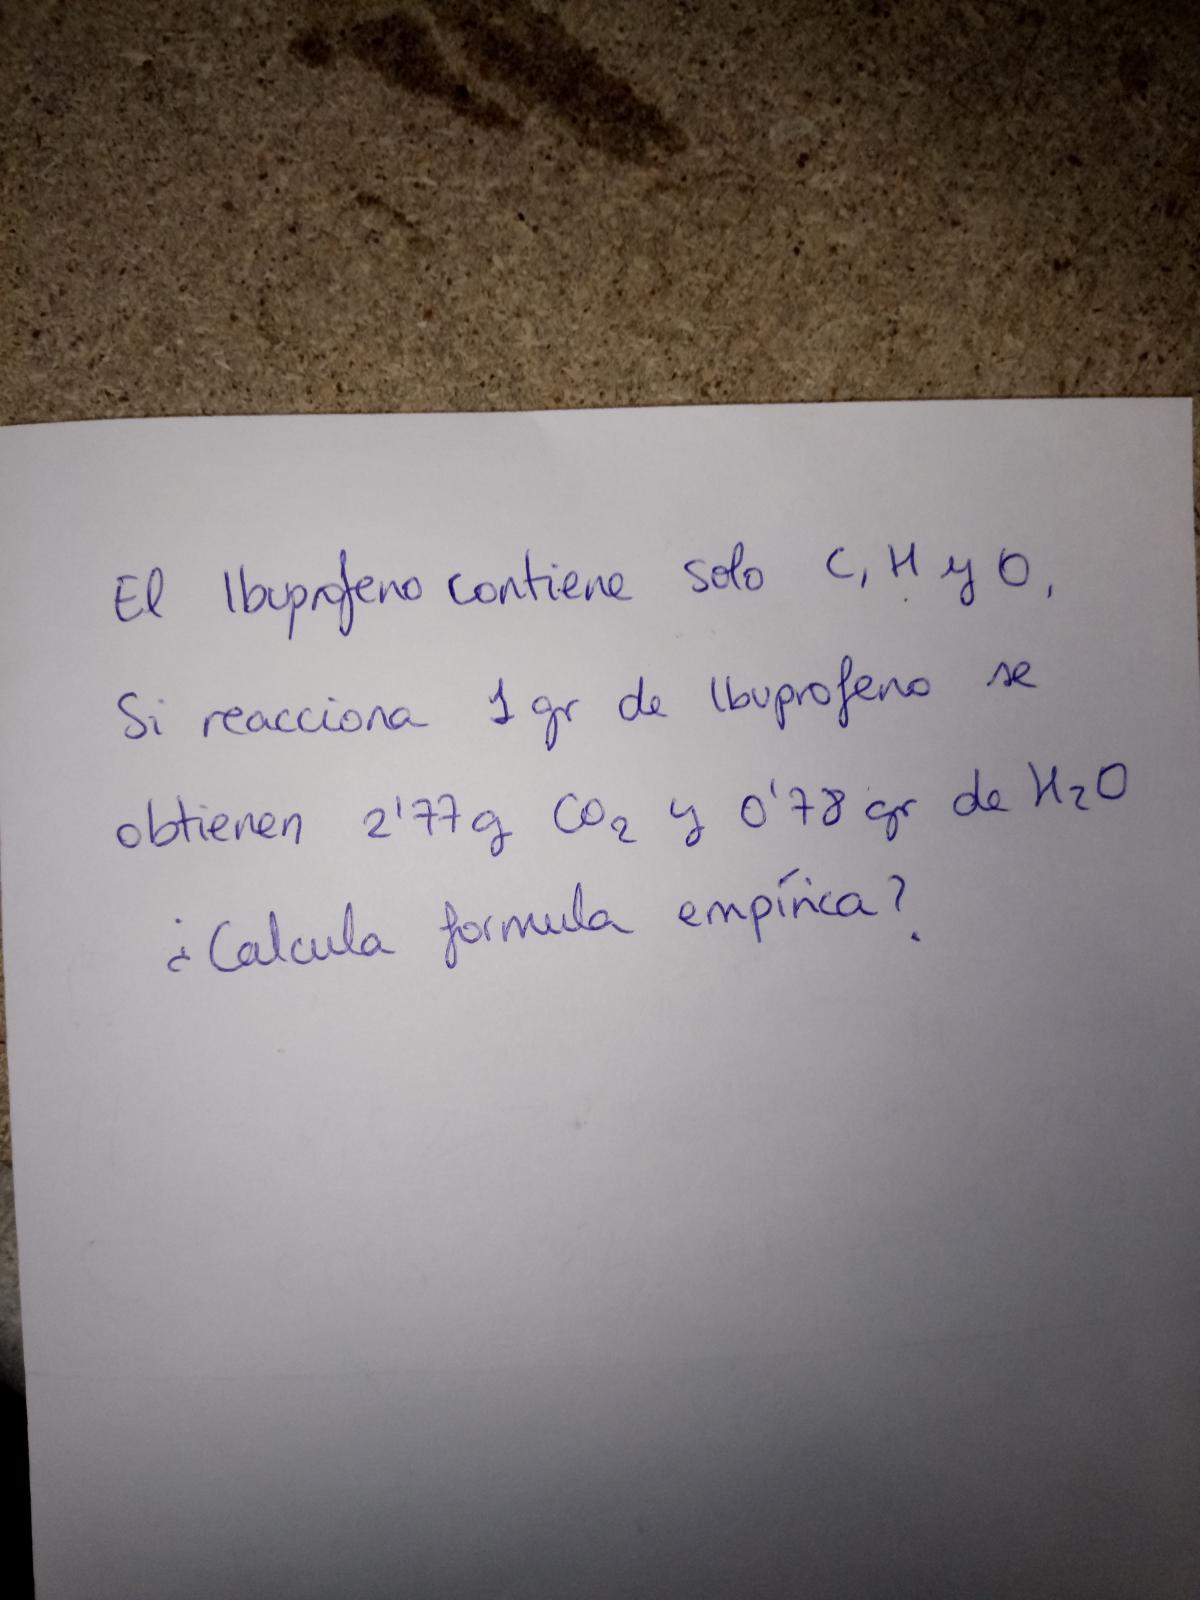 El Ibuprofeno contiene solo C, H y O,
Si reacciona 1 gr de Ibuprofeno se
obtienen 2'77g CO₂ y 0'78 gr de H₂O
¿Calcula formula empírica?